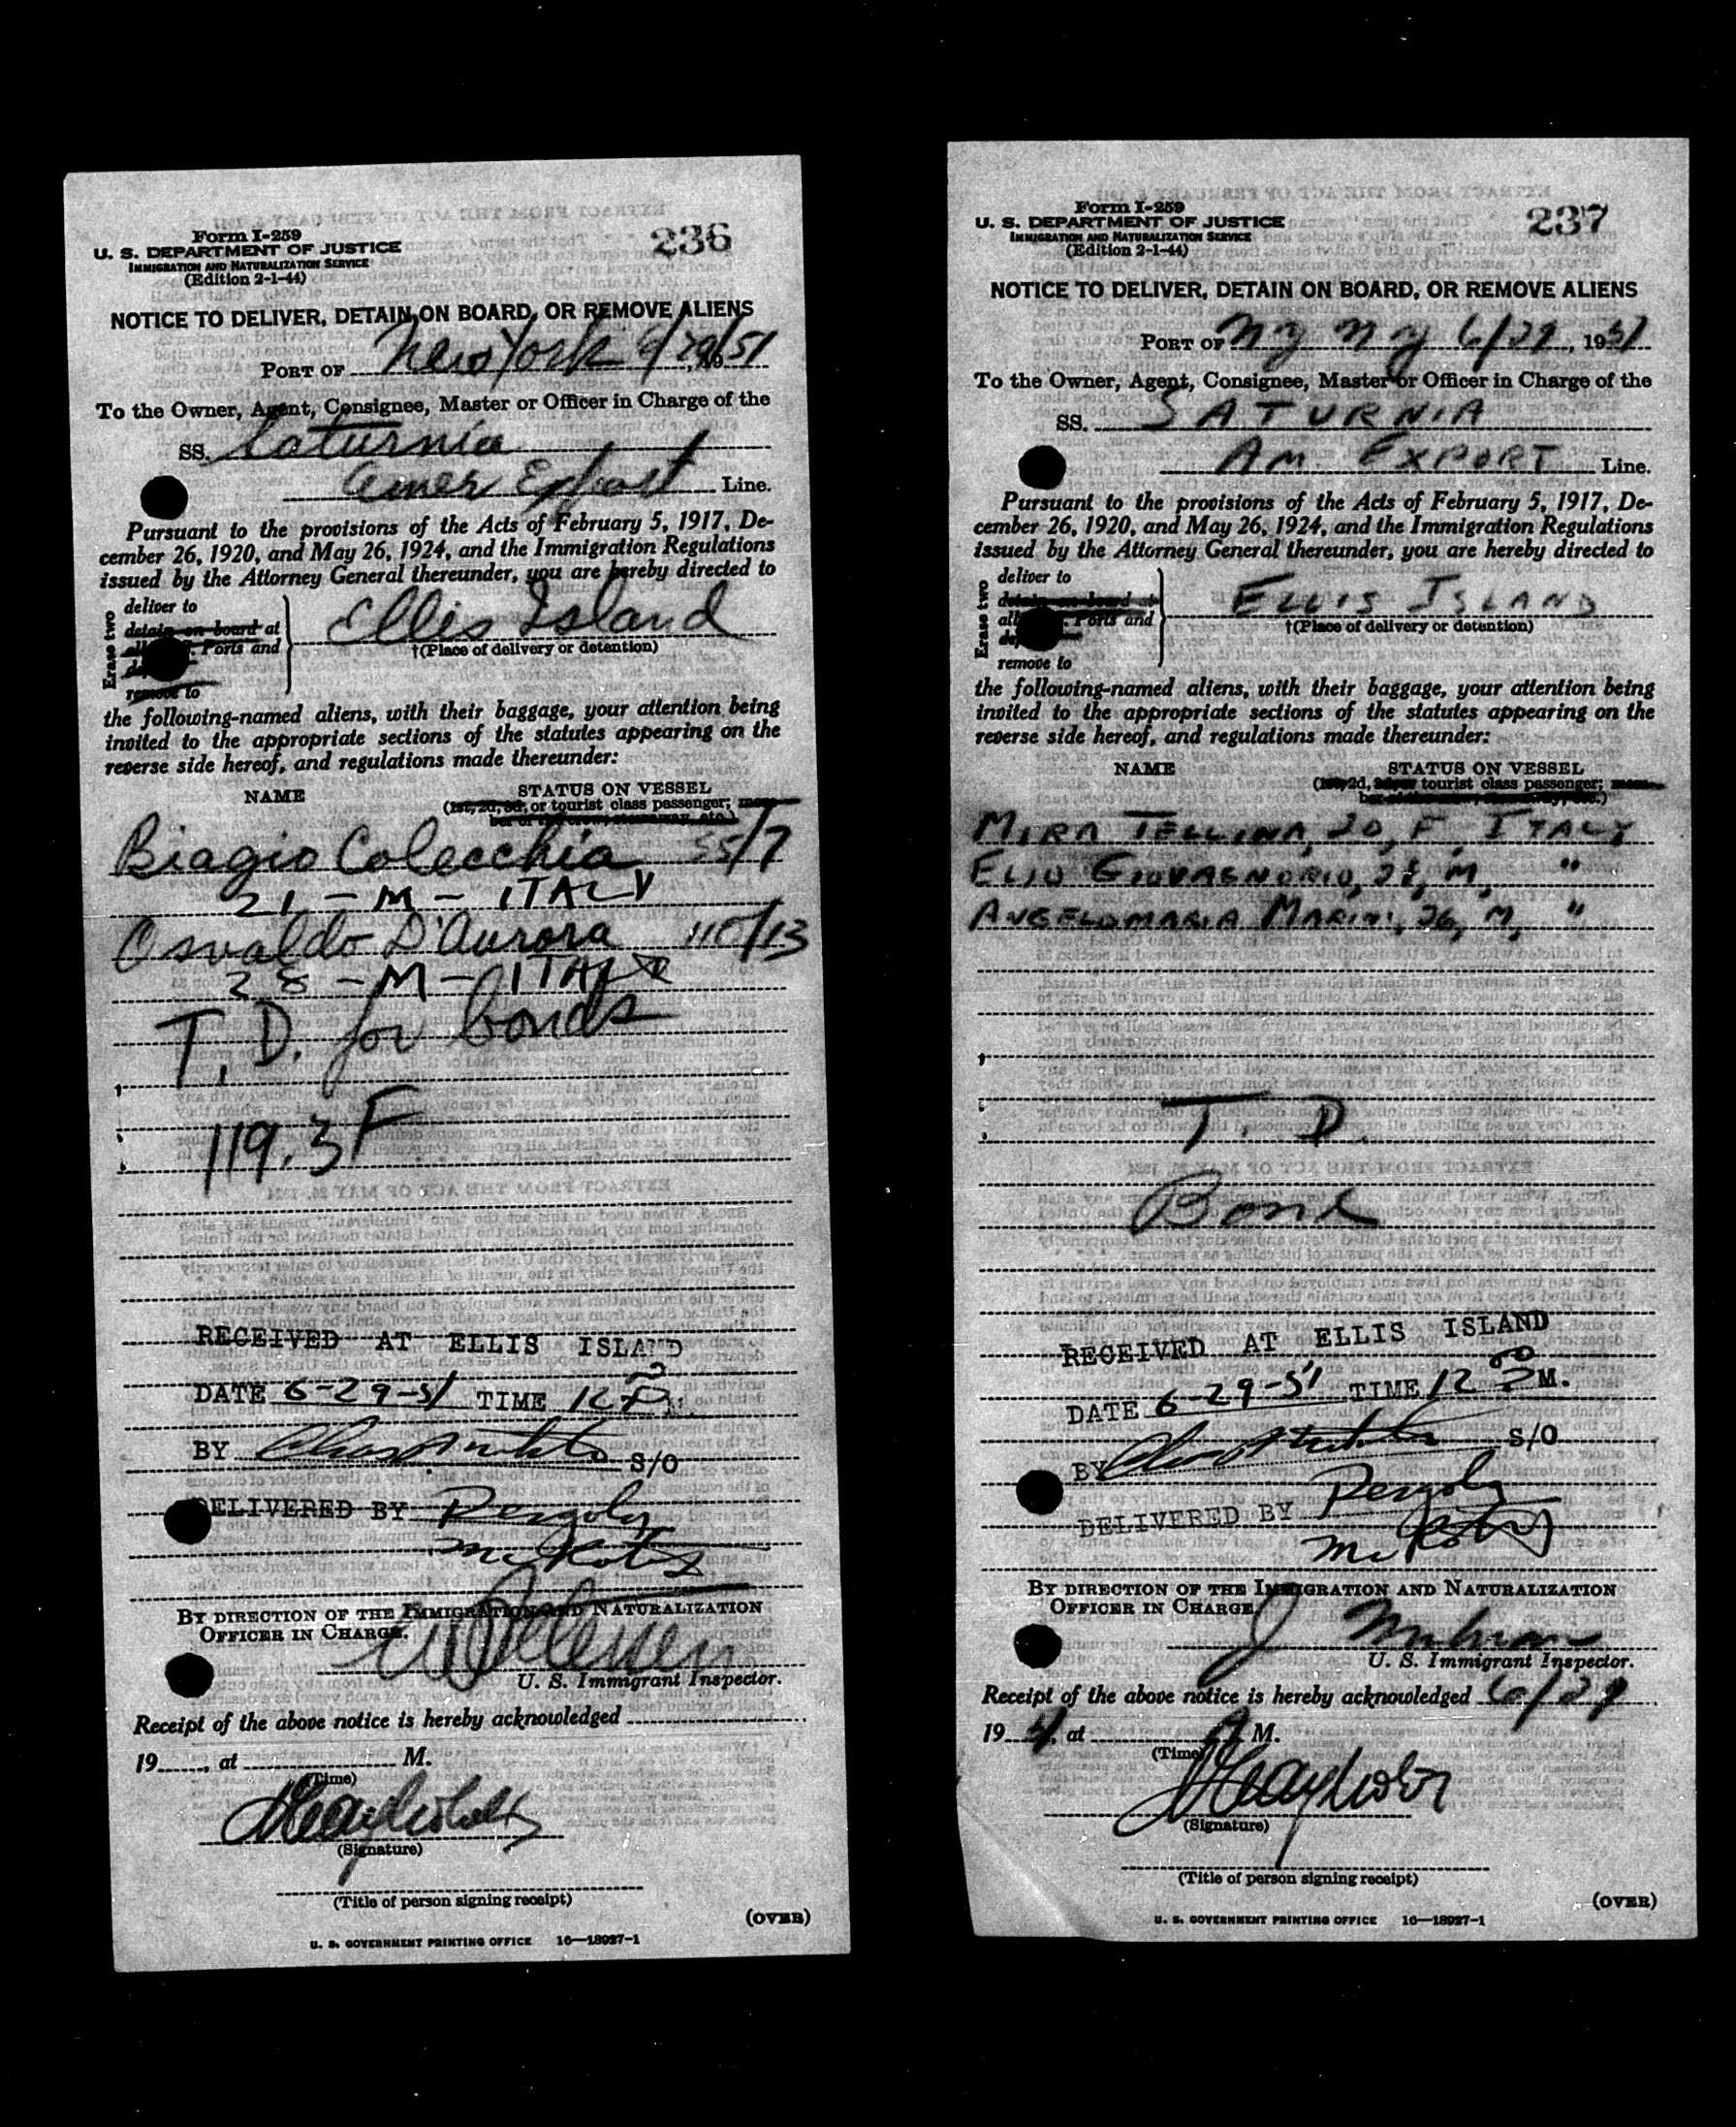 Form I-259
U. S. DEPARTMENT OF JUSTICE
IMMIGRATION AND NATURALIZATION SERVICE
(Edition 2-1-44)
236
NOTICE TO DELIVER, DETAIN ON BOARD, OR REMOVE ALIENS
PORT OF New York 6/29/51
To the Owner, Agent, Consignee, Master or Officer in Charge of the
SS. Saturnia
Amer Export Line.
Pursuant to the provisions of the Acts of February 5, 1917, De-
cember 26, 1920, and May 26, 1924, and the Immigration Regulations
issued by the Attorney General thereunder, you are hereby directed to
Erase two
deliver to
detain on board at
all Ports and
remove to
Ellis Island
†(Place of delivery or detention)
the following-named aliens, with their baggage, your attention being
invited to the appropriate sections of the statutes appearing on the
reverse side hereof, and regulations made thereunder:
NAME STATUS ON VESSEL
(1st, 2d, 3d, or tourist class passenger; mem-
ber of the crew, stowaway, etc.)
Biagio Colecchia 55/7
21 - M - ITALY
Osvaldo D'Aurora 115/13
28 - M - ITALY
T. D. for bonds
119.3F
RECEIVED AT ELLIS ISLAND
DATE 6-29-51 TIME 12
BY S/O
DELIVERED BY
BY DIRECTION OF THE IMMIGRATION AND NATURALIZATION
OFFICER IN CHARGE.
U. S. Immigrant Inspector.
Receipt of the above notice is hereby acknowledged
19, at M.
(Time)
(Signature)
(Title of person signing receipt)
(OVER)
U. S. GOVERNMENT PRINTING OFFICE 16—18927-1
Form I-259
U. S. DEPARTMENT OF JUSTICE
IMMIGRATION AND NATURALIZATION SERVICE
(Edition 2-1-44)
237
NOTICE TO DELIVER, DETAIN ON BOARD, OR REMOVE ALIENS
PORT OF NY NY 6/29, 1951
To the Owner, Agent, Consignee, Master or Officer in Charge of the
SS. SATURNIA
AM. EXPORT Line.
Pursuant to the provisions of the Acts of February 5, 1917, De-
cember 26, 1920, and May 26, 1924, and the Immigration Regulations
issued by the Attorney General thereunder, you are hereby directed to
Erase two
deliver to
detain on board at
all Ports and
remove to
ELLIS ISLAND
†(Place of delivery or detention)
the following-named aliens, with their baggage, your attention being
invited to the appropriate sections of the statutes appearing on the
reverse side hereof, and regulations made thereunder:
NAME STATUS ON VESSEL
(1st, 2d, 3d, or tourist class passenger; mem-
ber of the crew, stowaway, etc.)
MIRA TELLINA, 20, F. ITALY
ELIO GIOVAGNORIO, 28, M, "
ANGELOMARIA MARINI, 26, M, "
T. D.
Bond
RECEIVED AT ELLIS ISLAND
DATE 6-29-51 TIME 12 00 P M.
BY S/O
DELIVERED BY
BY DIRECTION OF THE IMMIGRATION AND NATURALIZATION
OFFICER IN CHARGE.
U. S. Immigrant Inspector.
Receipt of the above notice is hereby acknowledged 6/29
1951, at M.
(Time)
(Signature)
(Title of person signing receipt)
(OVER)
U. S. GOVERNMENT PRINTING OFFICE 16—18927-1